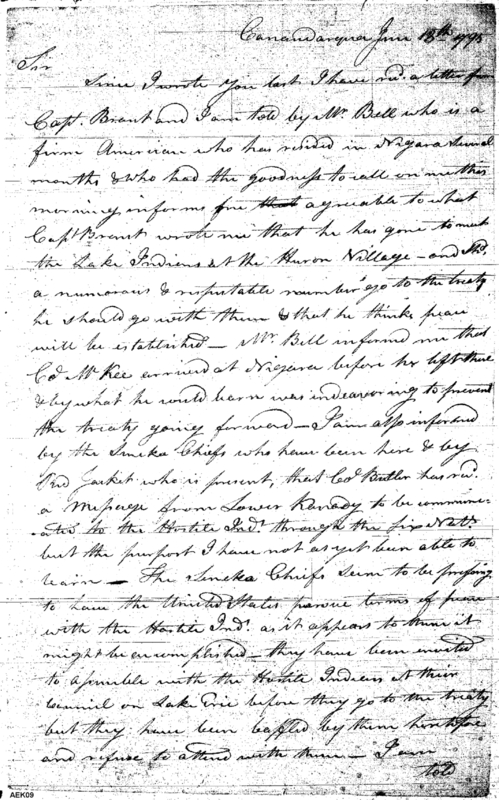 Canandarqua June 18th 1795
Sir
Since I wrote you last I have recd. a letter from
Capt. Brant and I am told by Mr. Bell who is a
firm American who has resided in Niagara several
months & who had the goodness to call on me this
morning informs me that agreable to what
Capt Brant wrote me that he has gone to meet
the Lake Indians at the Huron Village – and Shd.
a numorous & respectable number go to the treaty
he should go with them & that he thinks peace
will be established – Mr. Bell informed me that
Co. McKee arrived at Niagara before he left there
& by what he could learn was indeavoring to prevent
the treaty going forward – I am also informed
by the Seneka Chiefs who have been here & by
Red Jacket who is present, that Co. Butler has recd.
a Message from Lower Kanady to be communi-
-cated to the Hostile Inds. through the six Nats.
but the purport I have not as yet been able to
learn – The Seneka Chiefs seem to be pressing
to have the United States pursue terms of peace
with the Hostile Inds. as it appears to them it
might be accomplished – they have been invited
to assemble with the Hostile Indians at their
council on Lake Erie before they go to the treaty
but they have been baffled by them heretofore
and refuse to attend with them – I am
told
AEK09